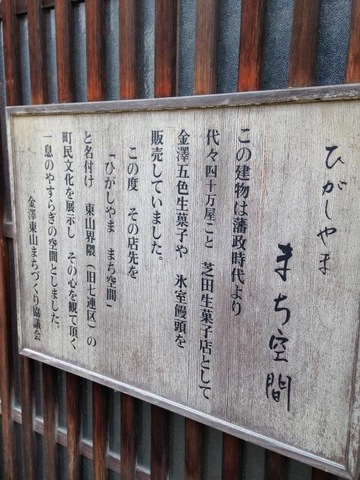 ひがしやま
まち空間
この建物は藩政時代より
代々四十万屋こと 芝田生菓子店として
金澤五色生菓子や 氷室饅頭を
販売していました。
この度 その店先を
「ひがしやま まち空間」
と名付け 東山界隈(旧七連区)の
町民文化を展示し その心を観て頂く
一息のやすらぎの空間としました。
金澤東山まちづくり協議会